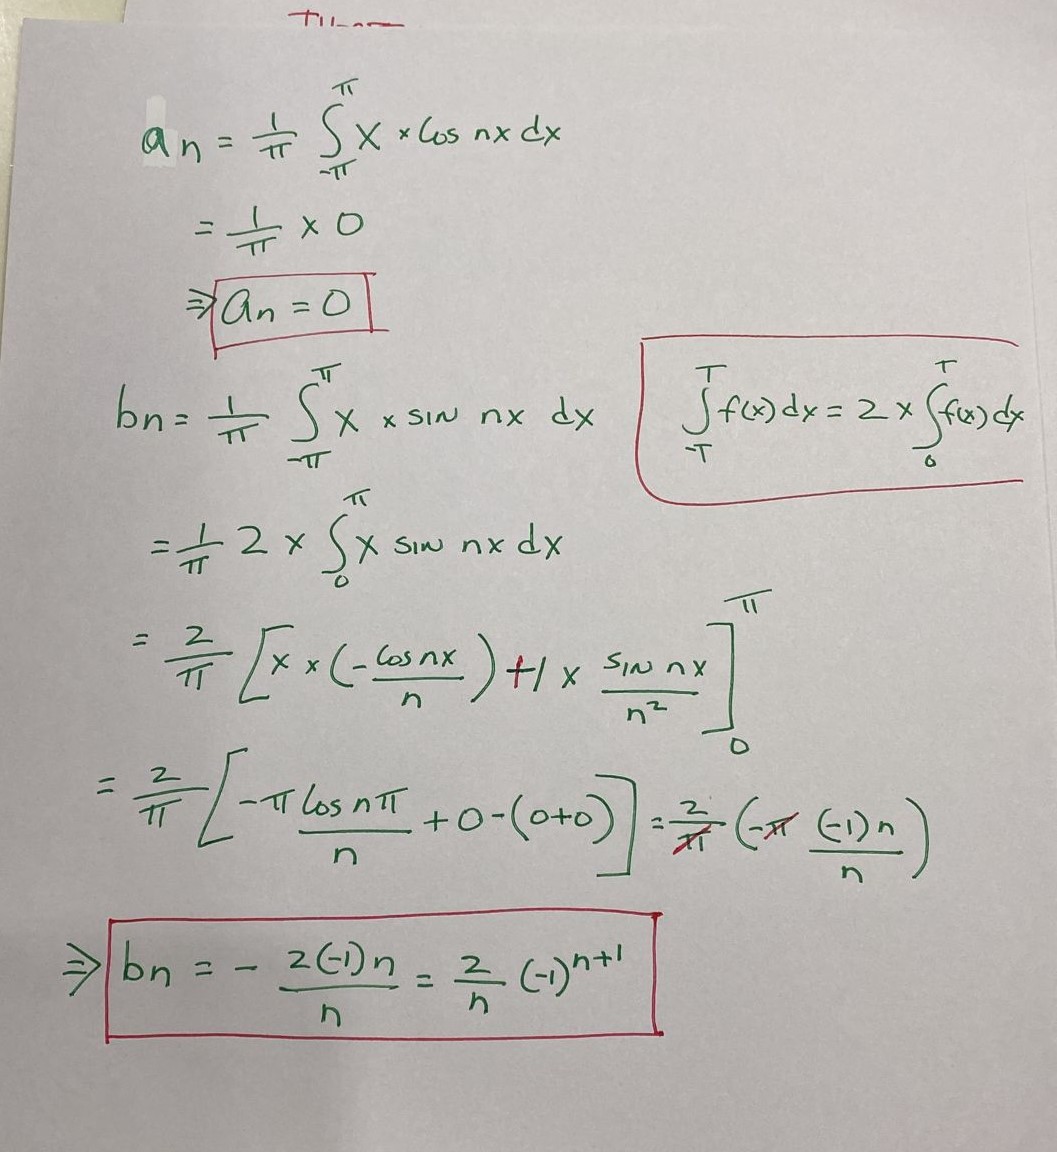 an = 1/π ∫_{-π}^{π} x × cos nx dx
= 1/π × 0
⇒ an = 0
bn = 1/π ∫_{-π}^{π} x × sin nx dx
∫_{-T}^{T} f(x) dx = 2 × ∫_{0}^{T} f(x) dx
= 1/π 2 × ∫_{0}^{π} x sin nx dx
= 2/π [x × (- cos nx / n) + 1 × sin nx / n²]_{0}^{π}
= 2/π [-π cos nπ / n + 0 - (0+0)] = 2/π (-π (-1)n / n)
⇒ bn = - 2(-1)n / n = 2/n (-1)^{n+1}